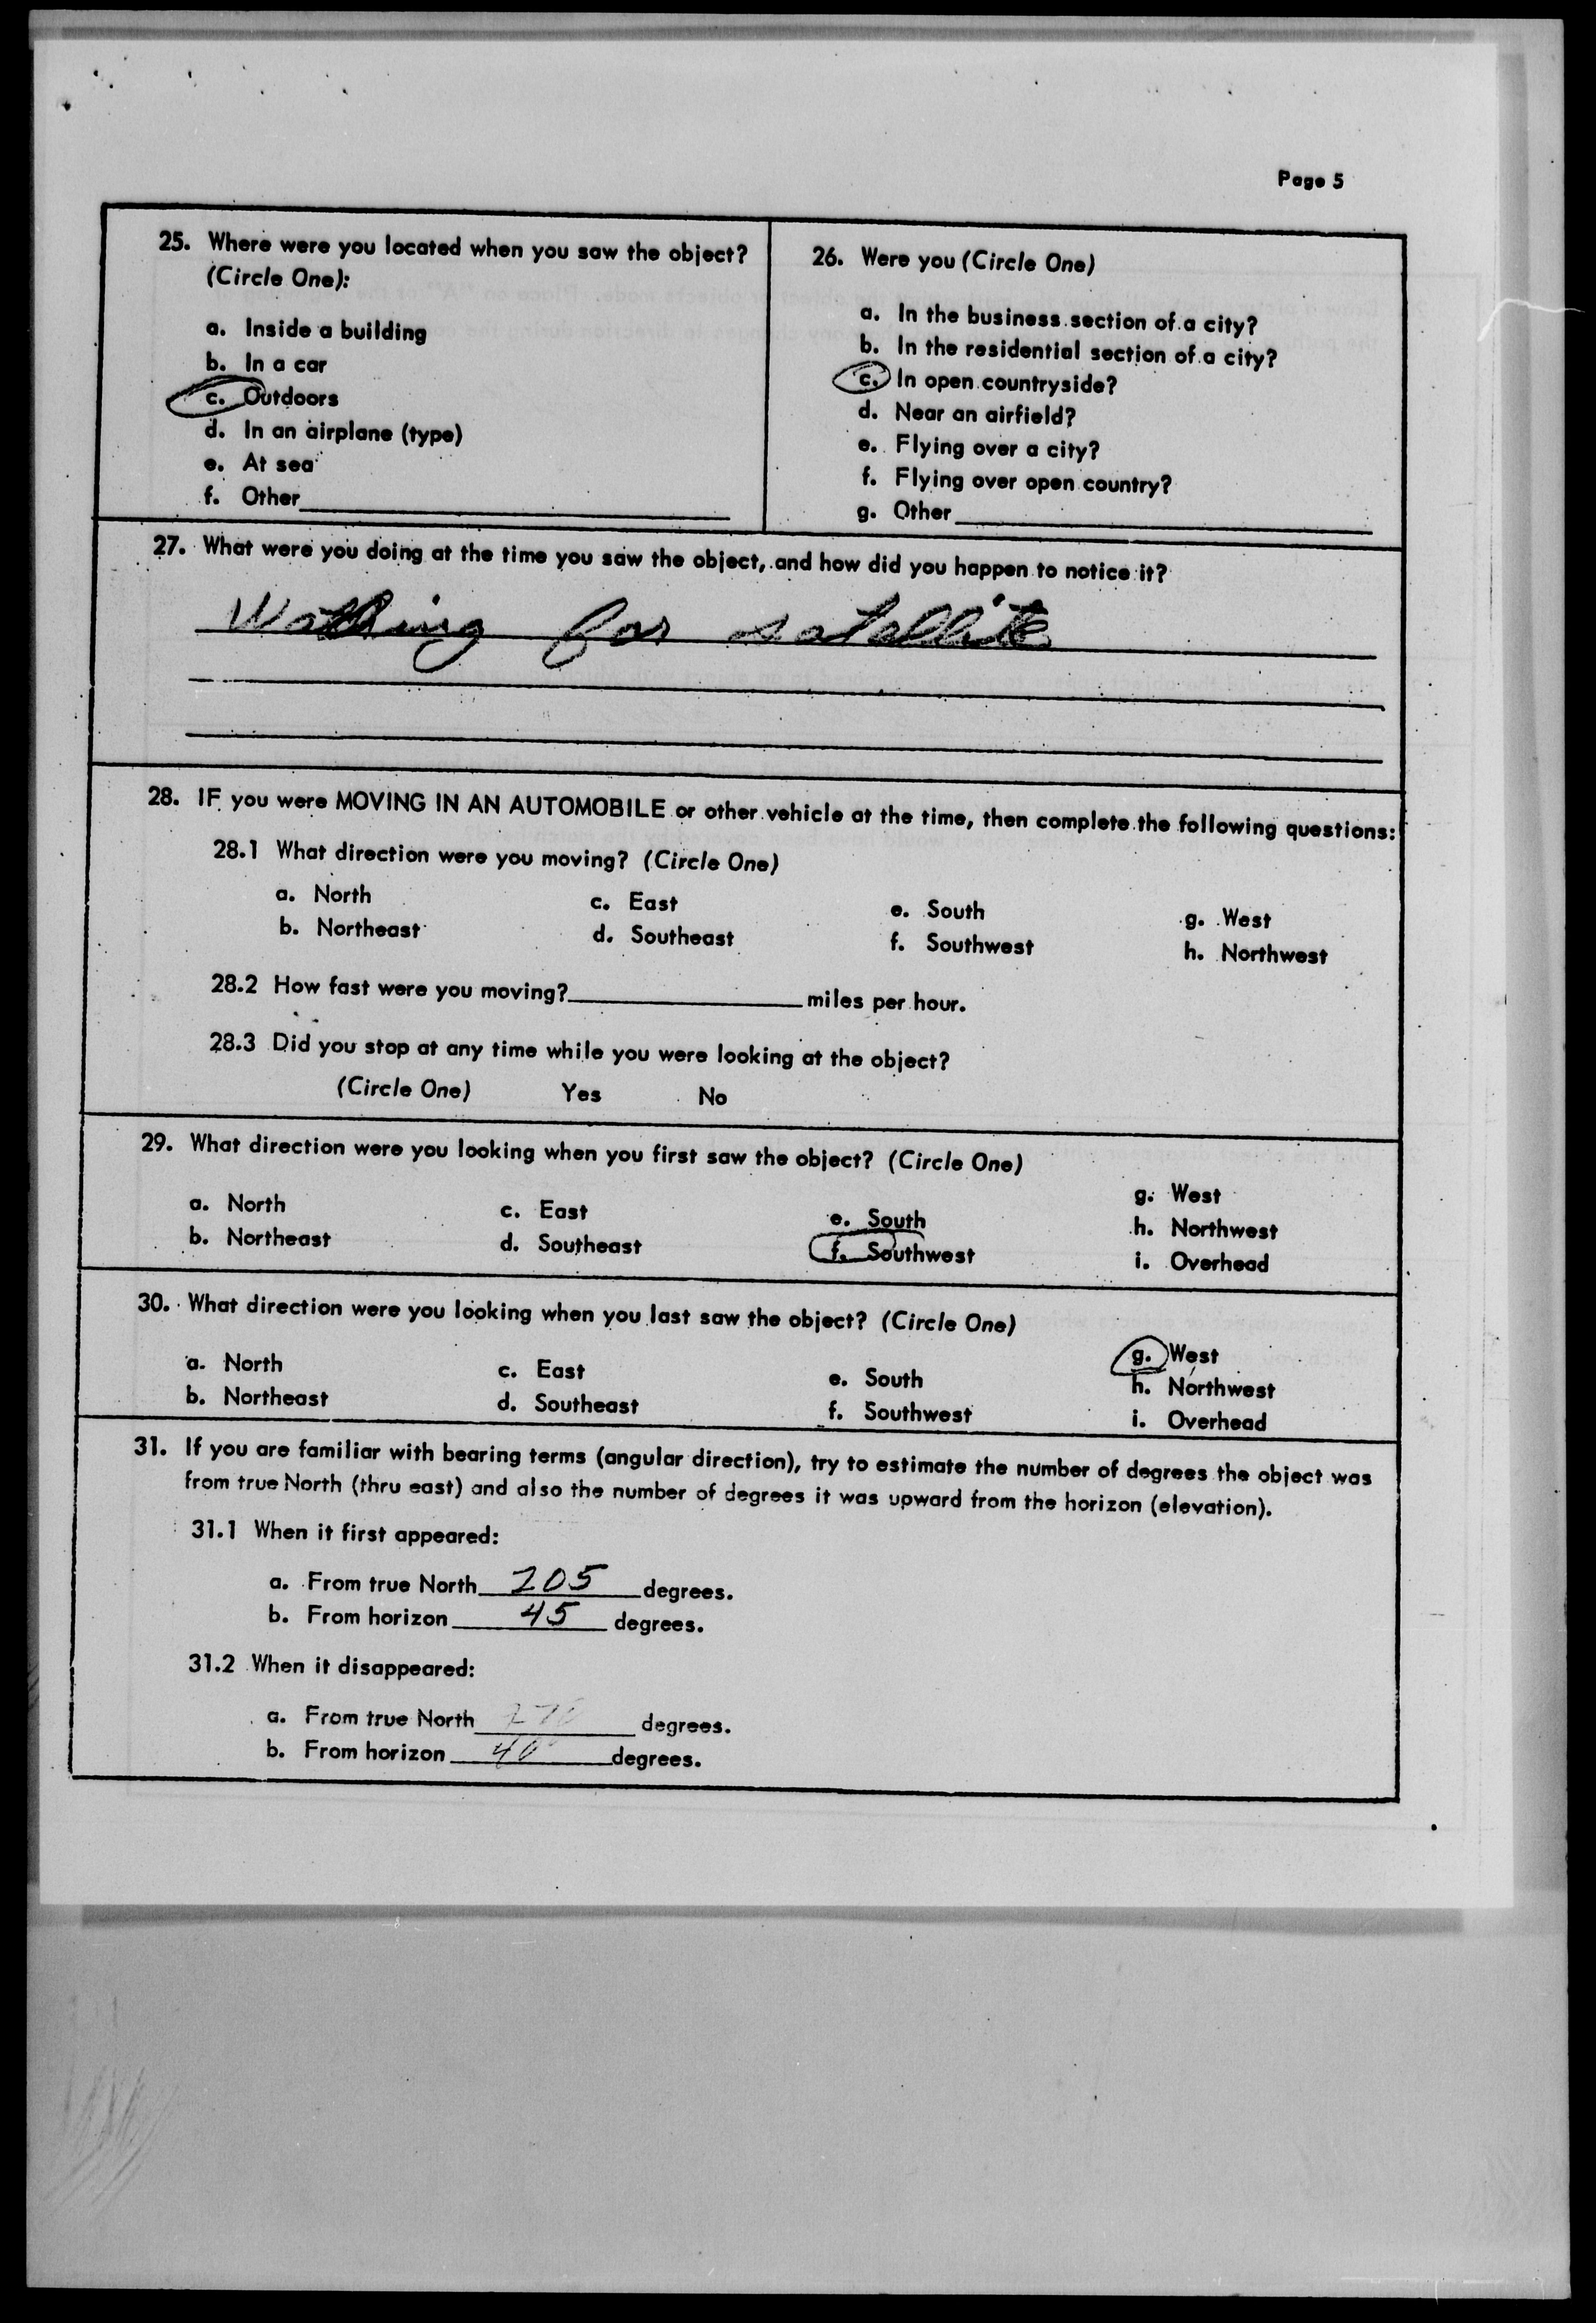 Page 5
25. Where were you located when you saw the object?
(Circle One):
a. Inside a building
b. In a car
c. Outdoors
d. In an airplane (type)
e. At sea
f. Other
26. Were you (Circle One)
a. In the business section of a city?
b. In the residential section of a city?
c. In open countryside?
d. Near an airfield?
e. Flying over a city?
f. Flying over open country?
g. Other
27. What were you doing at the time you saw the object, and how did you happen to notice it?
Watching for satellite
28. IF you were MOVING IN AN AUTOMOBILE or other vehicle at the time, then complete the following questions:
28.1 What direction were you moving? (Circle One)
a. North c. East e. South g. West
b. Northeast d. Southeast f. Southwest h. Northwest
28.2 How fast were you moving? miles per hour.
28.3 Did you stop at any time while you were looking at the object?
(Circle One) Yes No
29. What direction were you looking when you first saw the object? (Circle One)
a. North c. East e. South g. West
b. Northeast d. Southeast f. Southwest h. Northwest
i. Overhead
30. What direction were you looking when you last saw the object? (Circle One)
a. North c. East e. South g. West
b. Northeast d. Southeast f. Southwest h. Northwest
i. Overhead
31. If you are familiar with bearing terms (angular direction), try to estimate the number of degrees the object was
from true North (thru east) and also the number of degrees it was upward from the horizon (elevation).
31.1 When it first appeared:
a. From true North 205 degrees.
b. From horizon 45 degrees.
31.2 When it disappeared:
a. From true North 270 degrees.
b. From horizon 40 degrees.